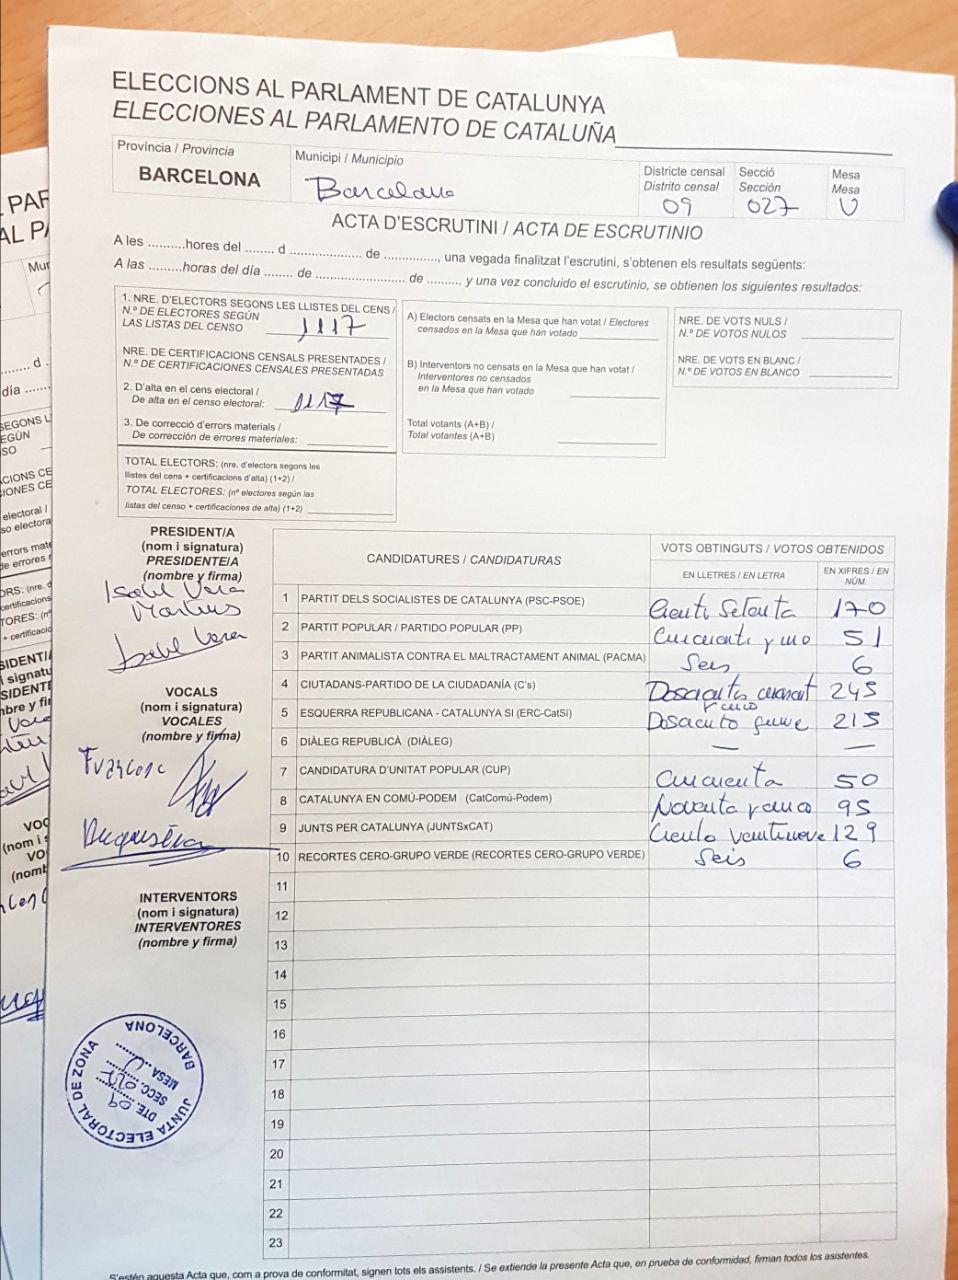 ELECCIONS AL PARLAMENT DE CATALUNYA
ELECCIONES AL PARLAMENTO DE CATALUÑA
Província / Provincia
BARCELONA
Municipi / Municipio
Barcelona
Districte censal
Distrito censal
09
Secció
Sección
027
Mesa
Mesa
U
ACTA D'ESCRUTINI / ACTA DE ESCRUTINIO
A les ..........hores del ........ d .................... de ..............., una vegada finalitzat l'escrutini, s'obtenen els resultats següents:
A las .........horas del día ........ de ...................... de ........., y una vez concluido el escrutinio, se obtienen los siguientes resultados:
1. NRE. D'ELECTORS SEGONS LES LLISTES DEL CENS /
N.º DE ELECTORES SEGÚN
LAS LISTAS DEL CENSO 1117
NRE. DE CERTIFICACIONS CENSALS PRESENTADES /
N.º DE CERTIFICACIONES CENSALES PRESENTADAS
2. D'alta en el cens electoral /
De alta en el censo electoral: 1117
3. De correcció d'errors materials /
De corrección de errores materiales:
TOTAL ELECTORS: (nre. d'electors segons les
llistes del cens + certificacions d'alta) (1+2) /
TOTAL ELECTORES: (nº electores según las
listas del censo + certificaciones de alta) (1+2)
A) Electors censats en la Mesa que han votat / Electores
censados en la Mesa que han votado
B) Interventors no censats en la Mesa que han votat /
Interventores no censados
en la Mesa que han votado
Total votants (A+B) /
Total votantes (A+B)
NRE. DE VOTS NULS /
N.º DE VOTOS NULOS
NRE. DE VOTS EN BLANC /
N.º DE VOTOS EN BLANCO
PRESIDENT/A
(nom i signatura)
PRESIDENTE/A
(nombre y firma)
Isabel Vera
Isabel Vera
VOCALS
(nom i signatura)
VOCALES
(nombre y firma)
Francesc
INTERVENTORS
(nom i signatura)
INTERVENTORES
(nombre y firma)
JUNTA ELECTORAL DE ZONA
BARCELONA
DTE. 09
SECC. 027
MESA U
CANDIDATURES / CANDIDATURAS
VOTS OBTINGUTS / VOTOS OBTENIDOS
EN LLETRES / EN LETRA
EN XIFRES / EN NÚM.
1 PARTIT DELS SOCIALISTES DE CATALUNYA (PSC-PSOE) Ciento Setenta 170
2 PARTIT POPULAR / PARTIDO POPULAR (PP) Cincuenta y uno 51
3 PARTIT ANIMALISTA CONTRA EL MALTRACTAMENT ANIMAL (PACMA) Seis 6
4 CIUTADANS-PARTIDO DE LA CIUDADANÍA (C's) Doscientos cuarenta y cinco 245
5 ESQUERRA REPUBLICANA - CATALUNYA SI (ERC-CatSí) 215
6 DIÀLEG REPUBLICÀ (DIÀLEG) — —
7 CANDIDATURA D'UNITAT POPULAR (CUP) Cincuenta 50
8 CATALUNYA EN COMÚ-PODEM (CatComú-Podem) Noventa y cinco 95
9 JUNTS PER CATALUNYA (JUNTSxCAT) Ciento veintinueve 129
10 RECORTES CERO-GRUPO VERDE (RECORTES CERO-GRUPO VERDE) Seis 6
11
12
13
14
15
16
17
18
19
20
21
22
23
S'estén aquesta Acta que, com a prova de conformitat, signen tots els assistents. / Se extiende la presente Acta que, en prueba de conformidad, firman todos los asistentes.